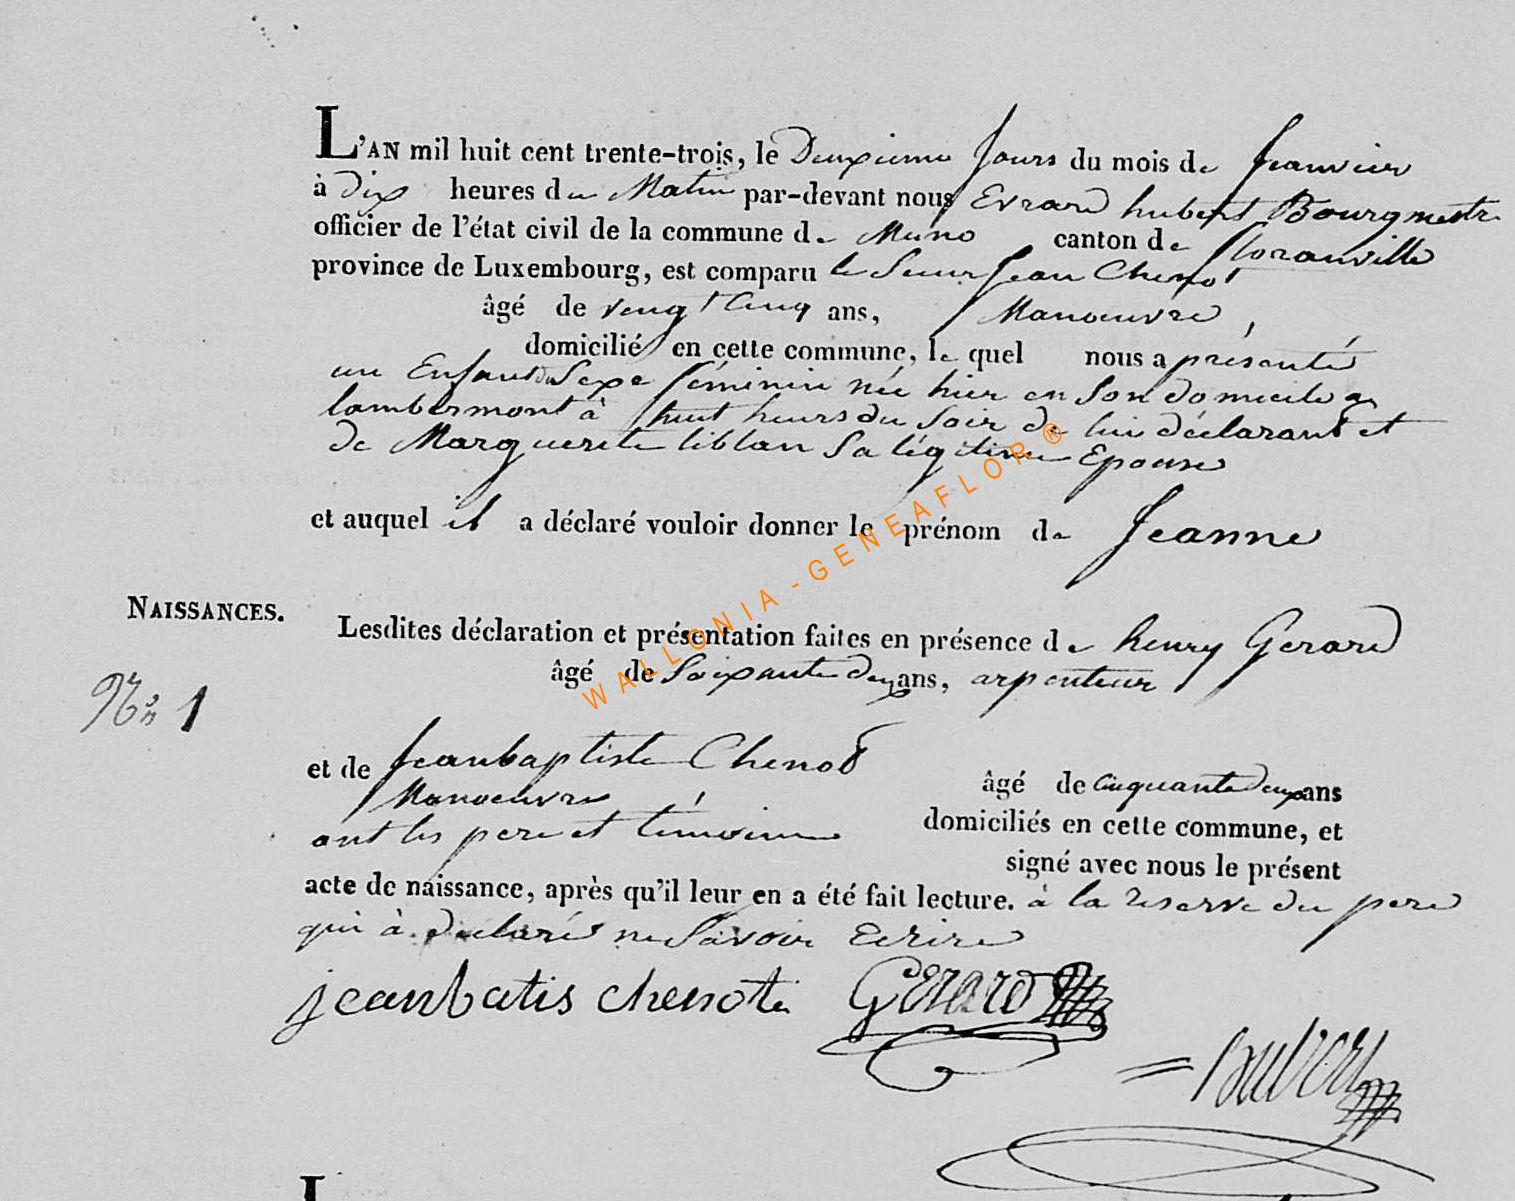 L'AN mil huit cent trente-trois, le Deuxieme Jours du mois de Janvier
à dix heures du Matin par-devant nous Evrard hubert Bourgmestre
officier de l'état civil de la commune de Muno canton de florenville
province de Luxembourg, est comparu le Sieur Jean Chenot
âgé de vengt Cinq ans, Manoeuvre,
domicilié en cette commune, le quel nous a présenté
un Enfant du Sexe féminin née hier en Son domicile a
lambermont à huit heurs du Soir de lui déclarant et
de Marguerite liblan Sa légitime Epouse
et auquel il a déclaré vouloir donner le prénom de Jeanne
NAISSANCES.
Lesdites déclaration et présentation faites en présence de henry Gerard
âgé de Soixante deux ans, arpenteur
No 1
et de Jeanbaptiste Chenot âgé de Cinquante deux ans
Manoeuvre
domiciliés en cette commune, et
ont les pere et témoins
signé avec nous le présent
acte de naissance, après qu'il leur en a été fait lecture. à la reserve du pere
qui à déclaré ne Savoir Ecrire
jeanbatis chenot Gerard
= hubert
WALLONIA-GENEAFLOR®
L